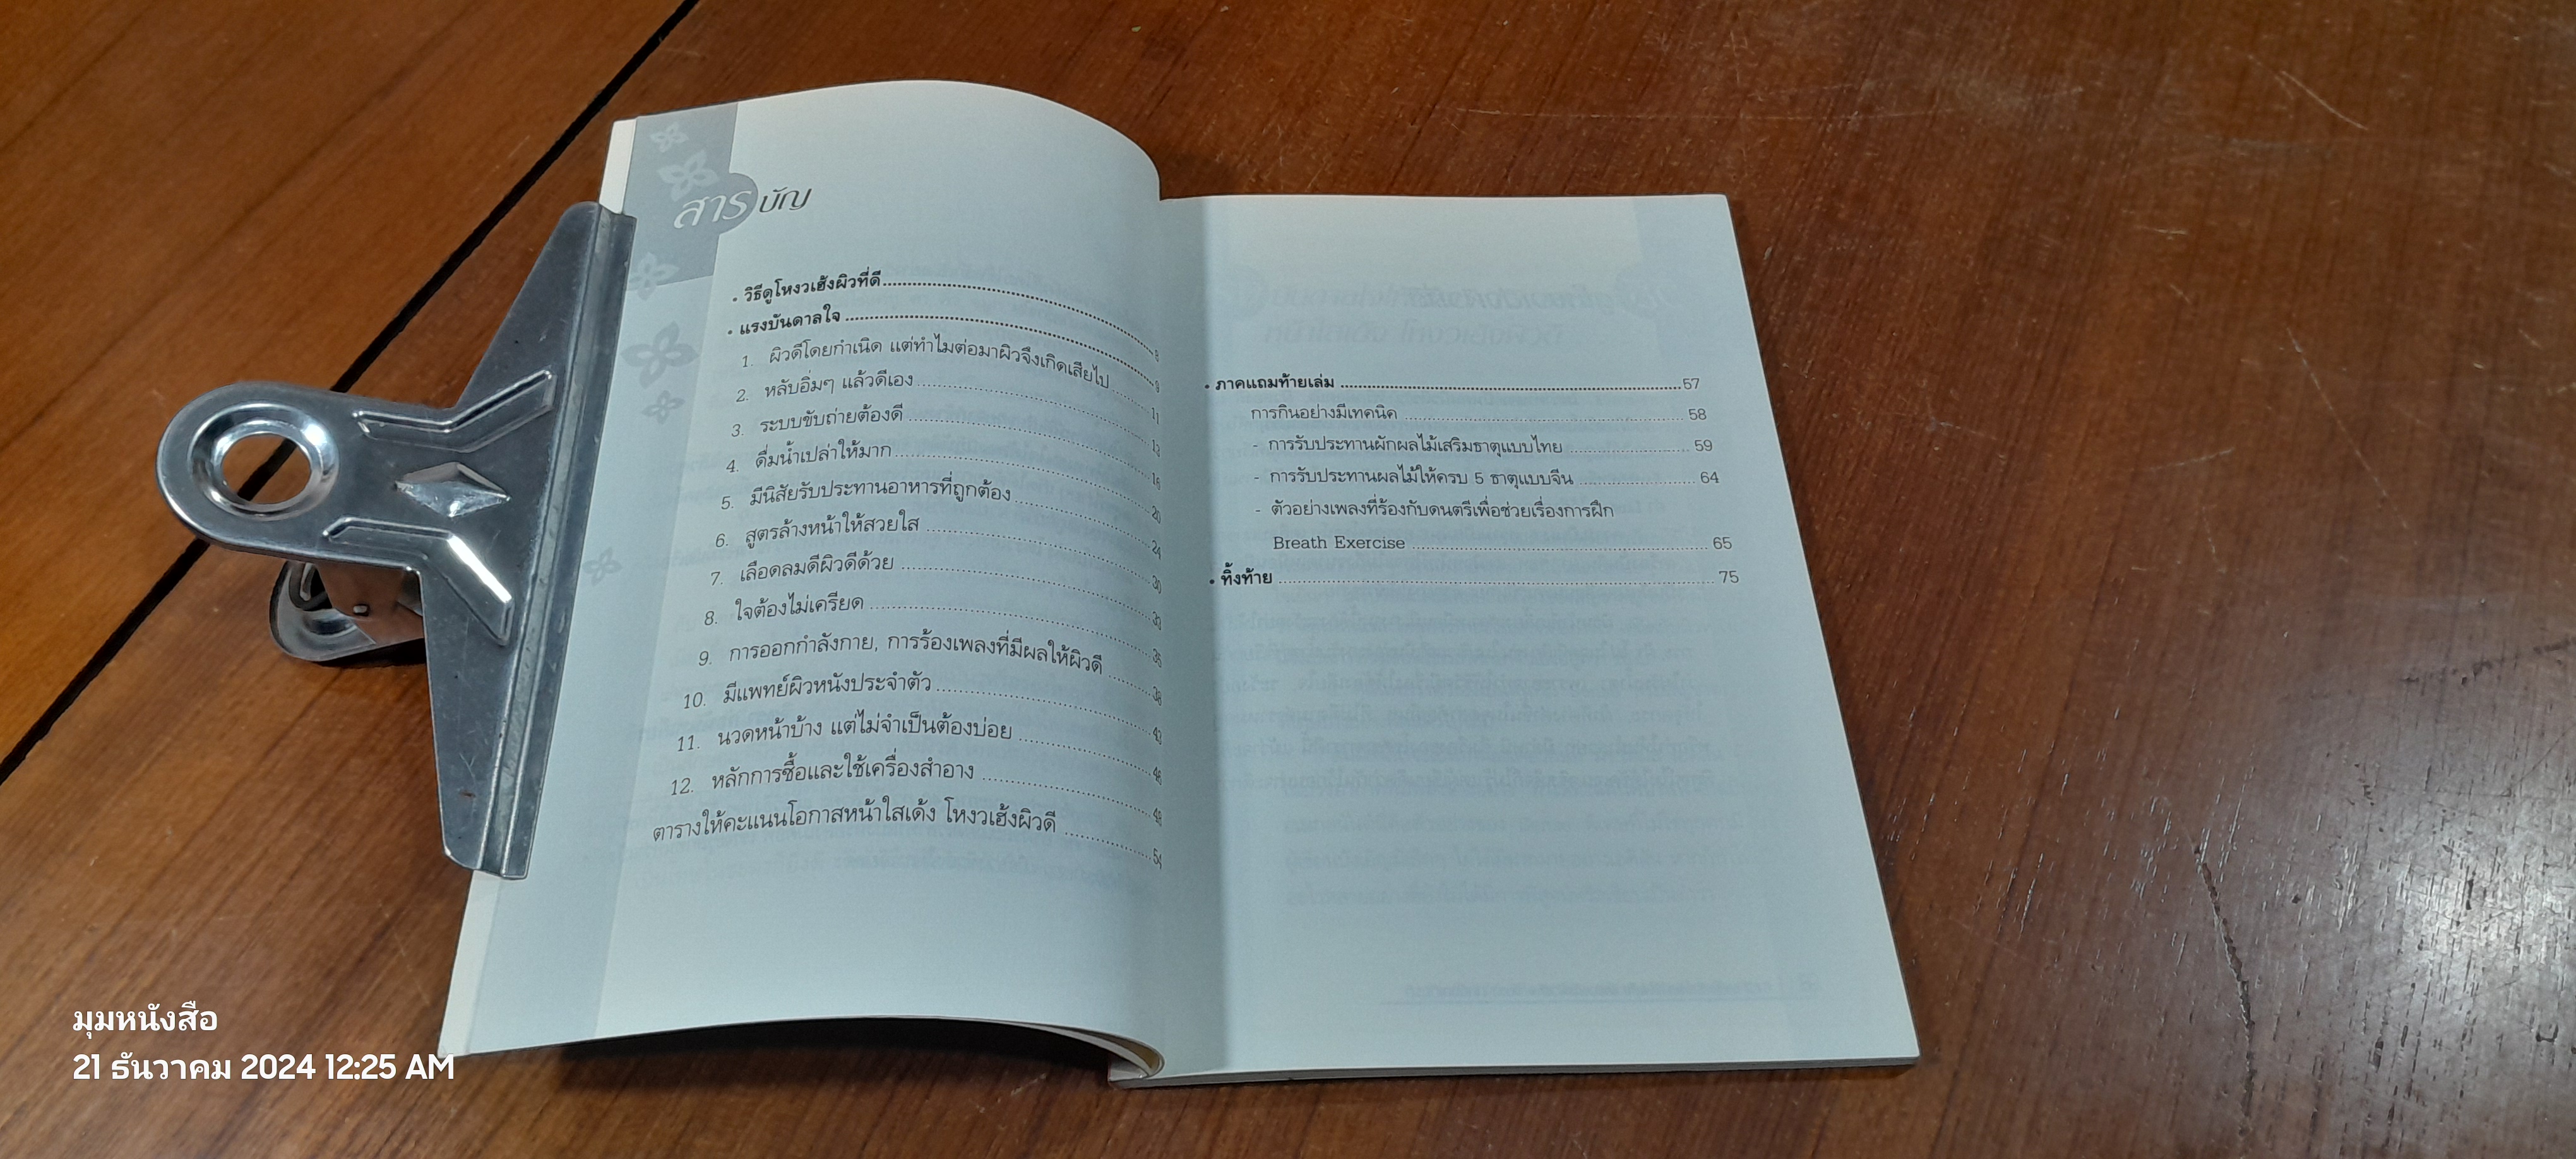 สารบัญ
• วิธีดูโหงวเฮ้งผิวที่ดี........ 8
• แรงบันดาลใจ ........ 9
1. ผิวดีโดยกำเนิด แต่ทำไมต่อมาผิวจึงเกิดเสียไป ........ 11
2. หลับอิ่มๆ แล้วดีเอง ........ 13
3. ระบบขับถ่ายต้องดี ........ 16
4. ดื่มน้ำเปล่าให้มาก ........ 20
5. มีนิสัยรับประทานอาหารที่ถูกต้อง ........ 24
6. สูตรล้างหน้าให้สวยใส ........ 30
7. เลือดลมดีผิวดีด้วย ........ 33
8. ใจต้องไม่เครียด ........ 36
9. การออกกำลังกาย, การร้องเพลงที่มีผลให้ผิวดี ........ 38
10. มีแพทย์ผิวหนังประจำตัว ........ 43
11. นวดหน้าบ้าง แต่ไม่จำเป็นต้องบ่อย ........ 46
12. หลักการซื้อและใช้เครื่องสำอาง ........ 48
ตารางให้คะแนนโอกาสหน้าใสเด้ง โหงวเฮ้งผิวดี ........ 54
• ภาคแถมท้ายเล่ม ........ 57
การกินอย่างมีเทคนิค ........ 58
- การรับประทานผักผลไม้เสริมธาตุแบบไทย ........ 59
- การรับประทานผลไม้ให้ครบ 5 ธาตุแบบจีน ........ 64
- ตัวอย่างเพลงที่ร้องกับดนตรีเพื่อช่วยเรื่องการฝึก
Breath Exercise ........ 65
• ทิ้งท้าย ........ 75
มุมหนังสือ
21 ธันวาคม 2024 12:25 AM